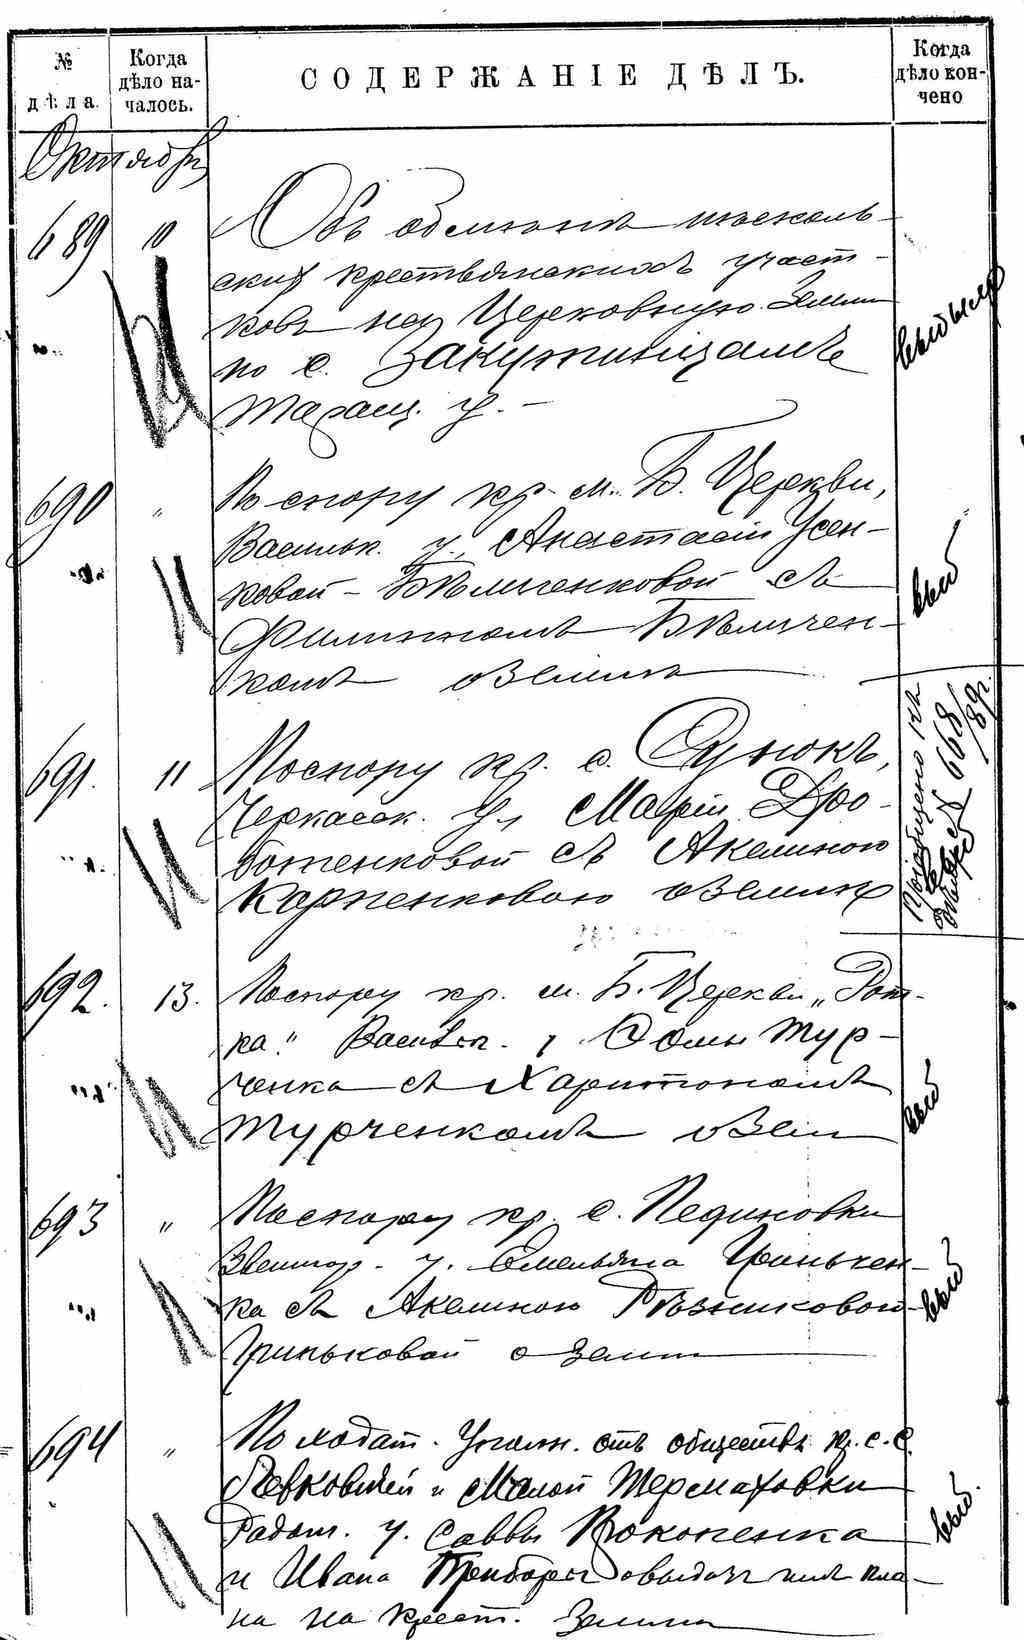 № дѣла.
Когда дѣло началось.
СОДЕРЖАНІЕ ДѢЛЪ.
Когда дѣло кончено
Октябрь
689 10 Объ обмѣнѣ нѣсколь-
скихъ крестьянскихъ участ-
ковъ на Церковную землю
по с. Закужинцамъ
Таращ. у. —
выбыло
690 " По спору кр. м. Б. Церкви,
Васильк. у., Анастасіи Усен-
ковой-Бѣличенковой съ
Филиппомъ Бѣличен-
комъ о землѣ
выб
691. 11 По спору кр. с. Сунокъ,
Черкасск. у. Маріи Дро-
ботенковой съ Акелиною
Карпенковою о землѣ
Пріобщено къ
№ 668/89 г.
692. 13. По спору кр. м. Б. Церкви „Рот-
ка" Васильк. у. Фомы Тур-
ченка съ Харитономъ
Турченкомъ о земл
выб
693 " По спору кр. с. Пединовки
Звениг. у. Емельяна Гриньчен-
ка съ Акелиною Рѣзниковой-
Гриньковой о земл
выб
694 " По ходат. Уполн. отъ обществъ кр. с. с.
Левковки и Малой Термаховки
Радом. у. Саввы Прокопенка
и Ивана о выдачѣ имъ пла-
на на крест. землю
выб.